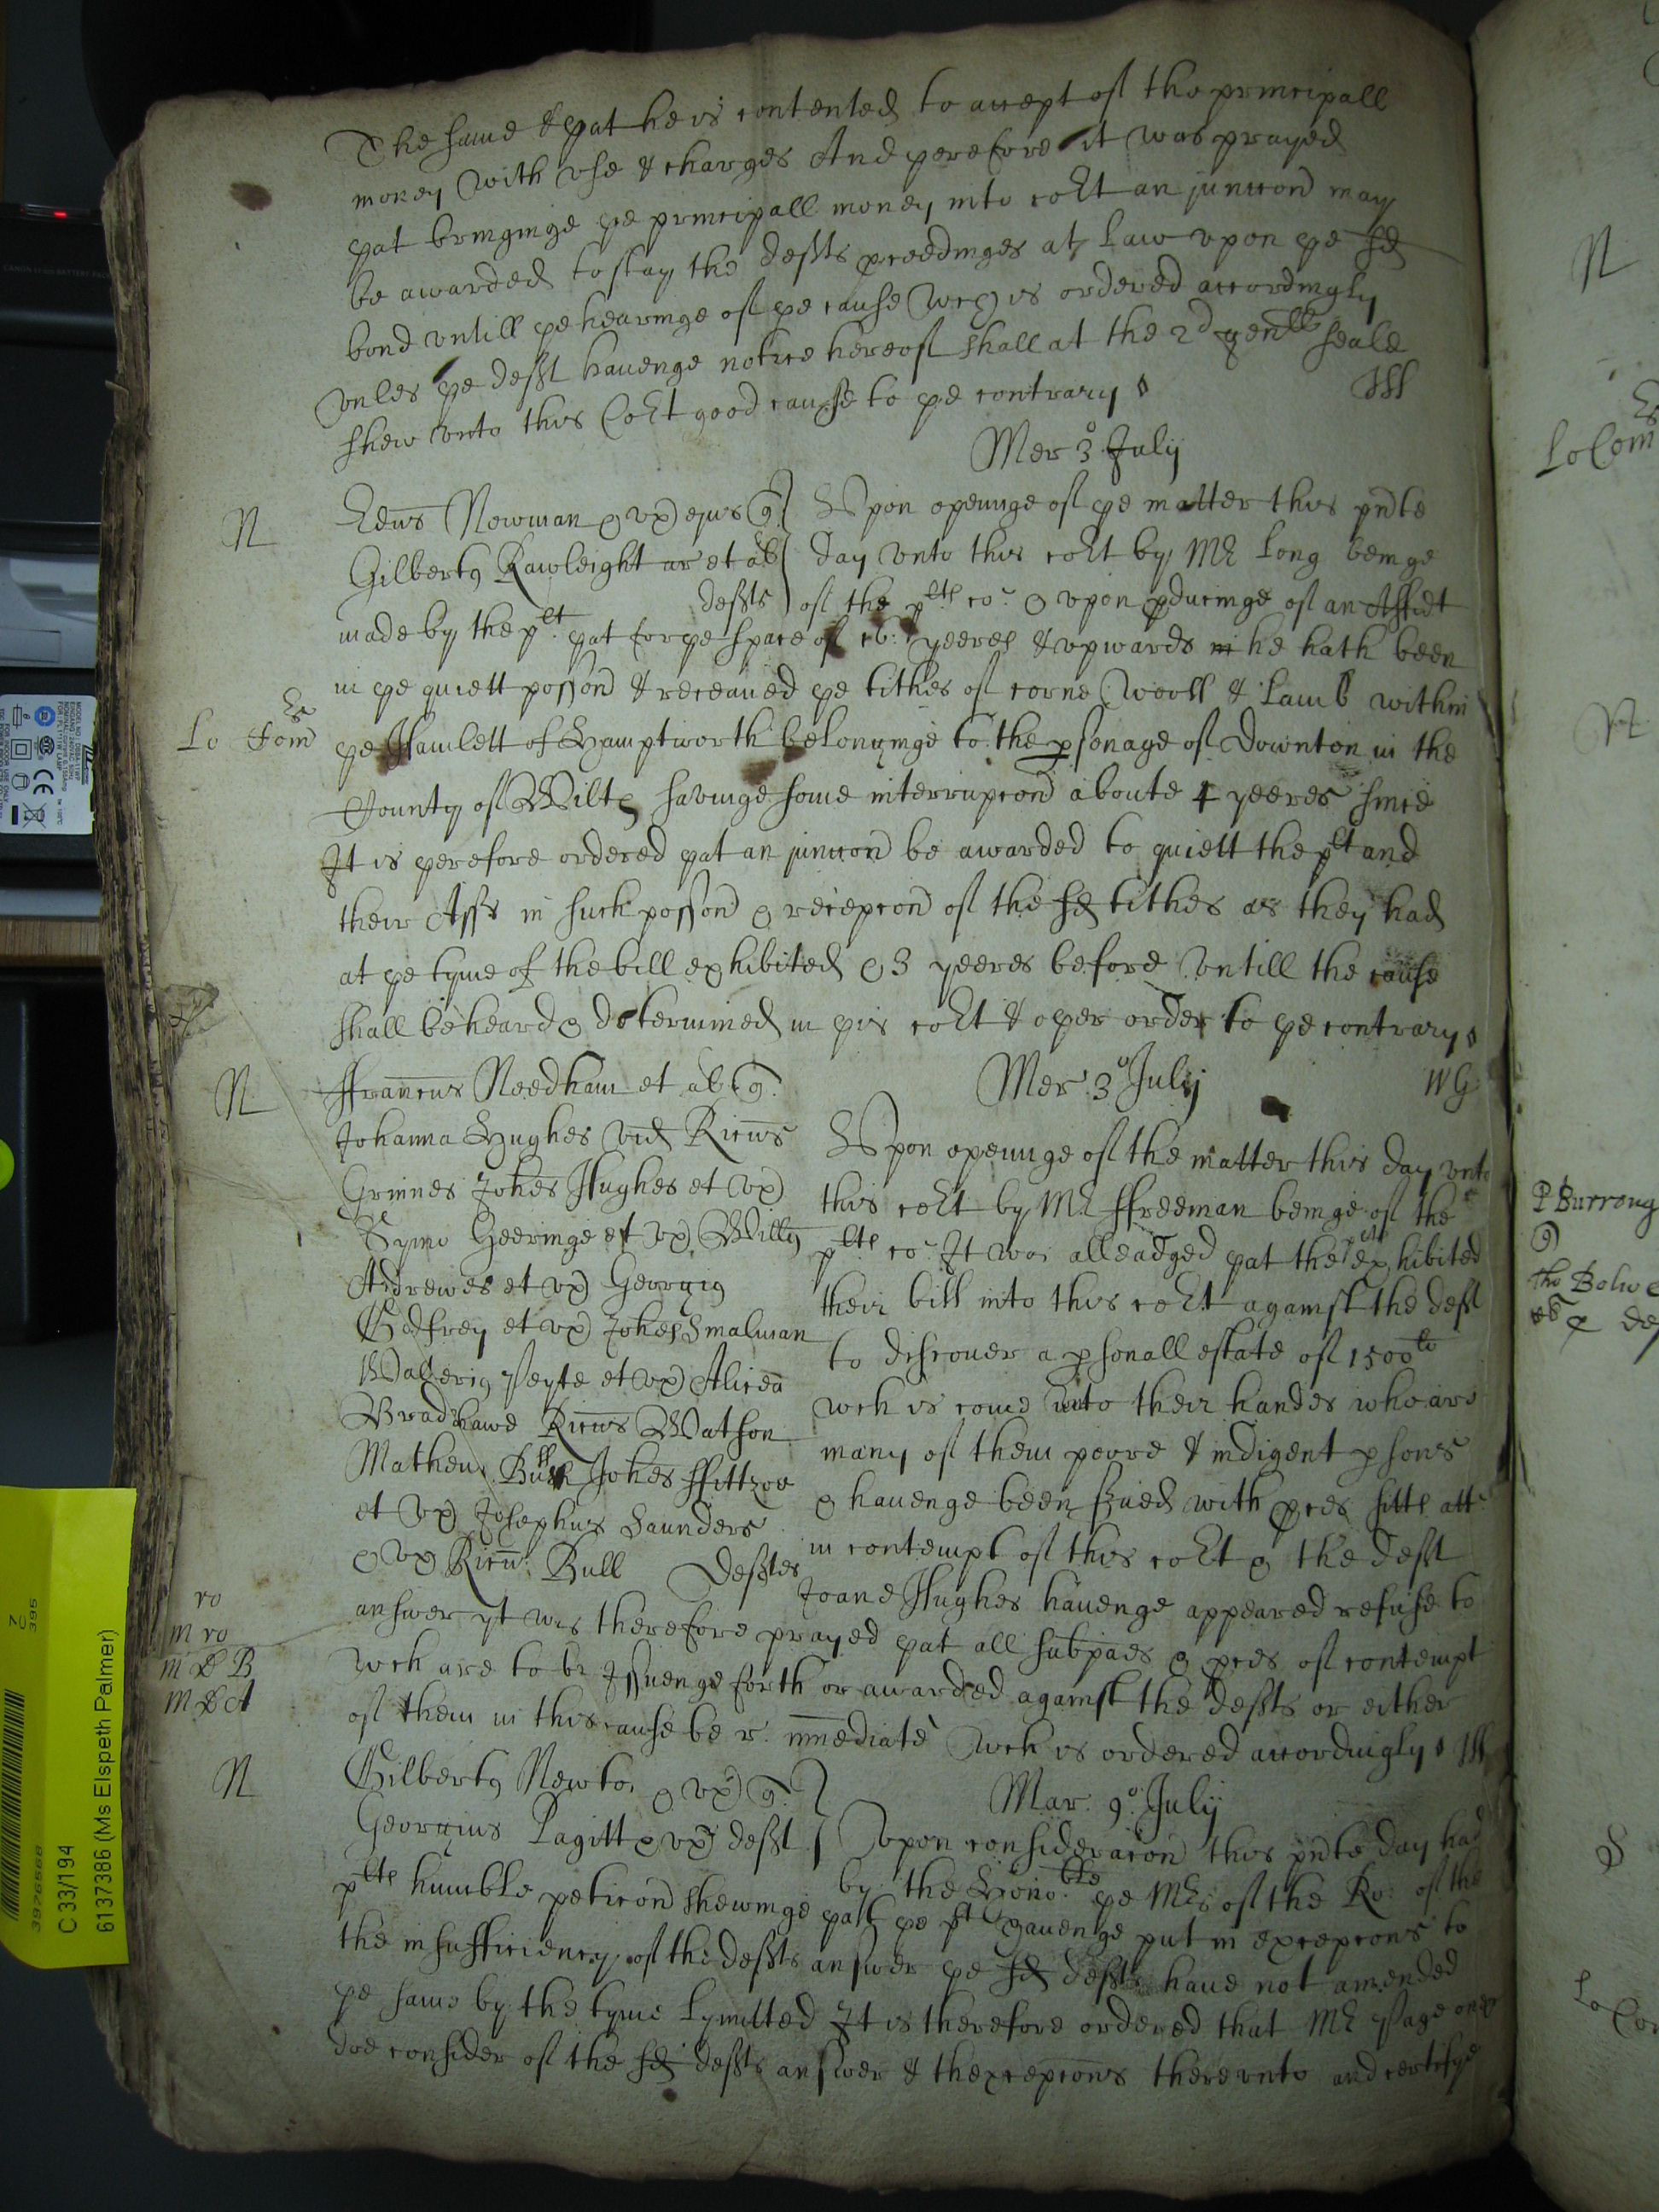 The same & yat he is contented to accept of the principall
money with vse & charges And yerefore it was prayed
yat bringinge ye principall money into cort an juncon may
be awarded to stay the defts proedinges at Law vpon ye sd
bond vntill ye hearinge of ye cause wch is ordered accordingly
vnles ye deft havenge notice hereof shall at the 2d genll seale
shew vnto this Cort good cause to ye contrary
Mer 3o July
N
Edrus Newman & vx ejus q
Gilbertus Rawleight ar et al
defts
Vpon openinge of ye matter this pnte
day vnto this cort by Mr Long beinge
of the plts co & vpon pducinge of an Affidt
made by the plt yat for ye space of yeeres & vpwards he hath been
in ye quiett posson & receaued ye tithes of corne Wooll & Lamb within
Lo Com
ye Hamlett of Hamptworth belonginge to the psonage of Downton in the
County of Wilts savinge some interrupcon aboute 4 yeeres since
It is yerefore ordered yat an juncon be awarded to quiett the plt and
their Asss in such posson & recepcon of the sd tithes as they had
at ye tyme of the bill exhibited & 3 yeeres before vntill the cause
shall be heard & determined in yis cort & oyer order to ye contrary
Mer 3o July
WG
N
ffrancus Needham et al q
Johanna Hughes vid Ricus
Grinnes Johes Hughes et vx
Symo Geeringe et vx Willus
Andrewes et vx Georgius
Godfrey et vx Johes Smalman
et vx Alicea
Bradshawe Ricus Watson
Mathew Johes
et vx Josephus Saunders
& vx Ricu Bull Deftes
Vpon openinge of the matter this day vnto
this cort by Mr ffreeman beinge of the
plts co It was alleadged yat the exhibited
their bill into this cort against the deft
to discouer a psonall estate of 1500li
wch is come into their handes who are
many of them poore & indigent psons
& havenge been sued with pces sitt att
in contempt of this cort & the deft
Joane Hughes havenge appeared refuse to
answer yt was therefore prayed yat all subpaes & pces of contempt
wch are to be Issuenge forth or awarded against the defts or either
of them in this cause be r. immediate wch is ordered accordingly
ro
m ro
N
Gilbertus Newto & vx q
Georgius Pagitt & vx deft
Mar. 9o July
Vpon consideracon this pnte day had
by the Hono:ble ye Mr of the Ro: of the
plts humble peticon shewinge yat ye plt havenge put in excepcons to
the insufficiency of the defts answer ye sd defts have not amended
ye same by the tyme Lymitted It is therefore ordered that Mr Page
doe consider of the sd defts answer & thexcepcons therevnto and certifye
N
Lo Com
P Burroug
q
Tho
C 33/194
6137386 (Ms Elspeth Palmer)
3976568